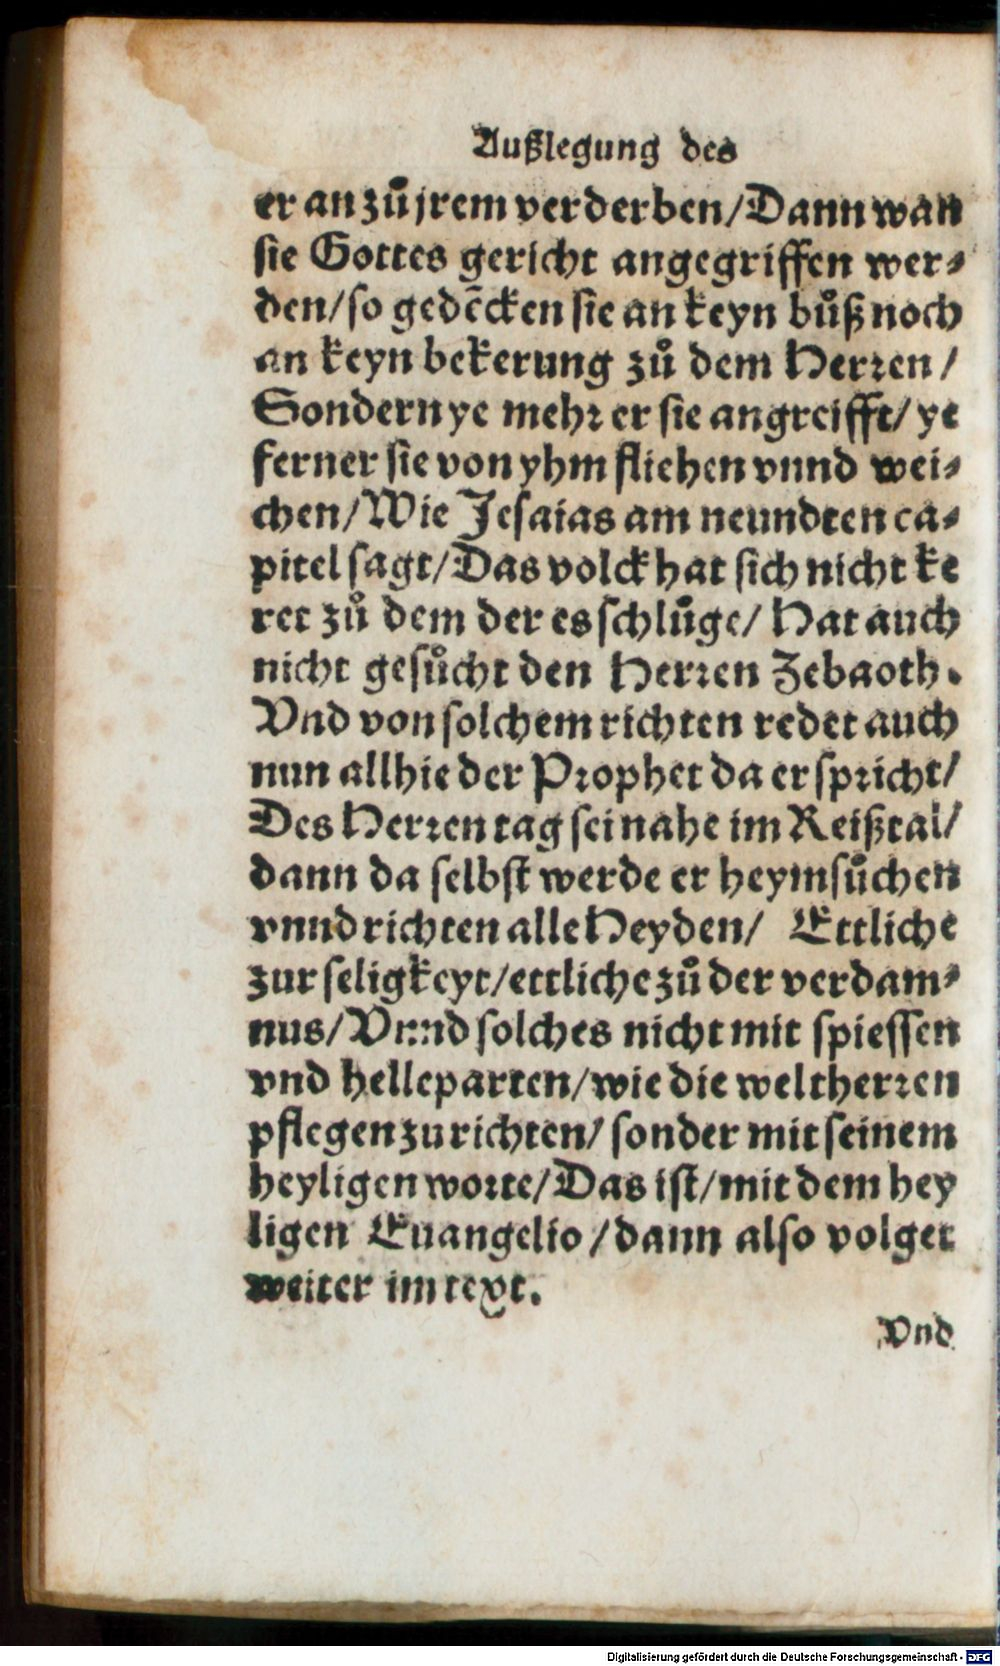 Außlegung des
er an zů jrem verderben/Dann wan
sie Gottes gericht angegriffen wer⸗
den/so gedẽcken sie an keyn bůß noch
an keyn bekerung zů dem Herren/
Sondern ye mehr er sie angreifft/ ye
ferner sie von yhm fliehen vnnd wei⸗
chen/Wie Jesaias am neundten ca⸗
pitel sagt/Das volck hat sich nicht ke
ret zů dem der es schlůge/ Hat auch
nicht gesůcht den Herren Zebaoth.
Vnd von solchem richten redet auch
nun allhie der Prophet da er spricht/
Des Herren tag sei nahe im Reißtal/
dann da selbst werde er heymsůchen
vnnd richten alle Heyden/ Ettliche
zur seligkeyt/ettliche zů der verdam⸗
nus/Vnnd solches nicht mit spiessen
vnd helleparten/wie die weltherren
pflegen zu richten/ sonder mit seinem
heyligen worte/Das ist/mit dem hey
ligen Euangelio/dann also volget
weiter im text.
Vnd
Digitalisierung gefördert durch die Deutsche Forschungsgemeinschaft - DFG